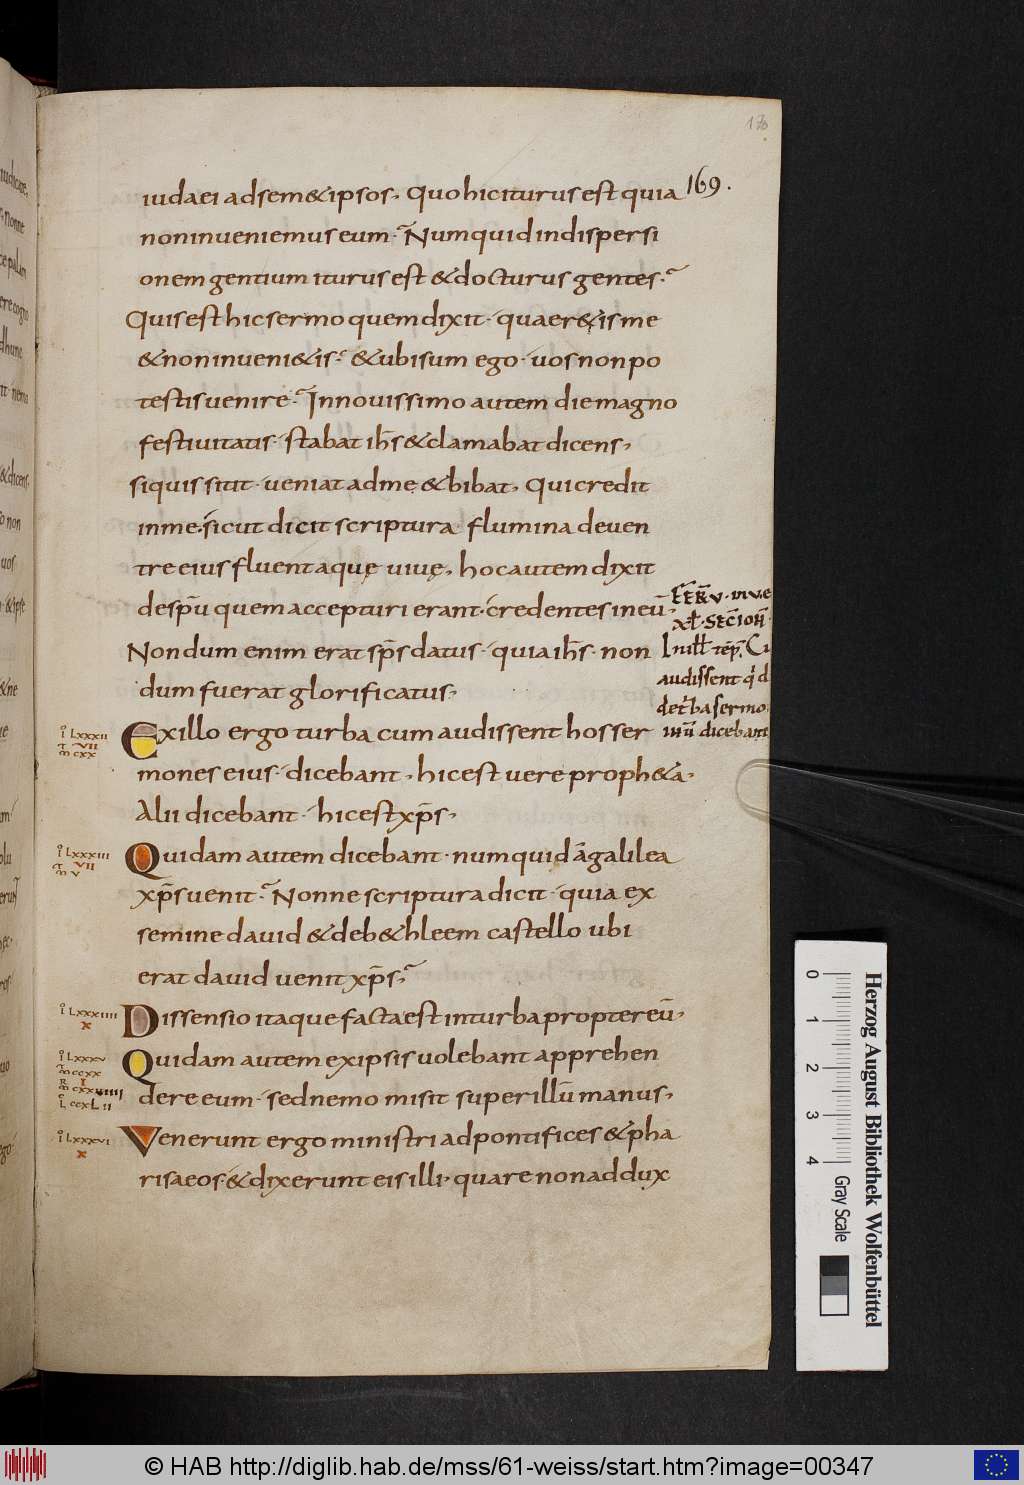 170
169.
iudaei adsem&ipsos, Quo hic iturus est quia
non inueniemus eum. Numquid indispersi
onem gentium iturus est & docturus gentes.
Quis est hic sermo quem dixit. quaer&is me
& non inueni&is. & ubi sum ego. uos non po
testis uenire. In nouissimo autem die magno
festiuitatis. stabat ih̅s & clamabat dicens,
siquis sitit. ueniat ad me & bibat, Qui credit
in me. sicut dicit scriptura flumina de uen
tre eius fluent aquę uiuę, hoc autem dixit
de sp̅u quem accepturi erant. credentes in eu̅,
Nondum enim erat sp̅s datus. quia ih̅s. non
dum fuerat glorificatus,
Ex illo ergo turba cum audissent hos ser
mones eius. dicebant, hic est uere proph&a,
Alii dicebant. hic est xp̅s,
Quidam autem dicebant. numquid a galilea
xp̅s uenit. Nonne scriptura dicit. quia ex
semine dauid & de b&hleem castello ubi
erat dauid uenit xp̅s,
Dissensio itaque facta est in turba propter eu̅,
Quidam autem ex ipsis uolebant apprehen
dere eum. sed nemo misit super illu̅ manus,
Venerunt ergo ministri ad pontifices & pha
risaeos. & dixerunt eis illi, quare non addux
audissent
sermo
dicebant
LXXXII
VII
CXX
LXXXIII
VII
V
LXXXIIII
X
LXXXV
CCXX
I
LXXXVI
X
0 1 2 3 4
Gray Scale
Herzog August Bibliothek Wolfenbüttel
© HAB http://diglib.hab.de/mss/61-weiss/start.htm?image=00347